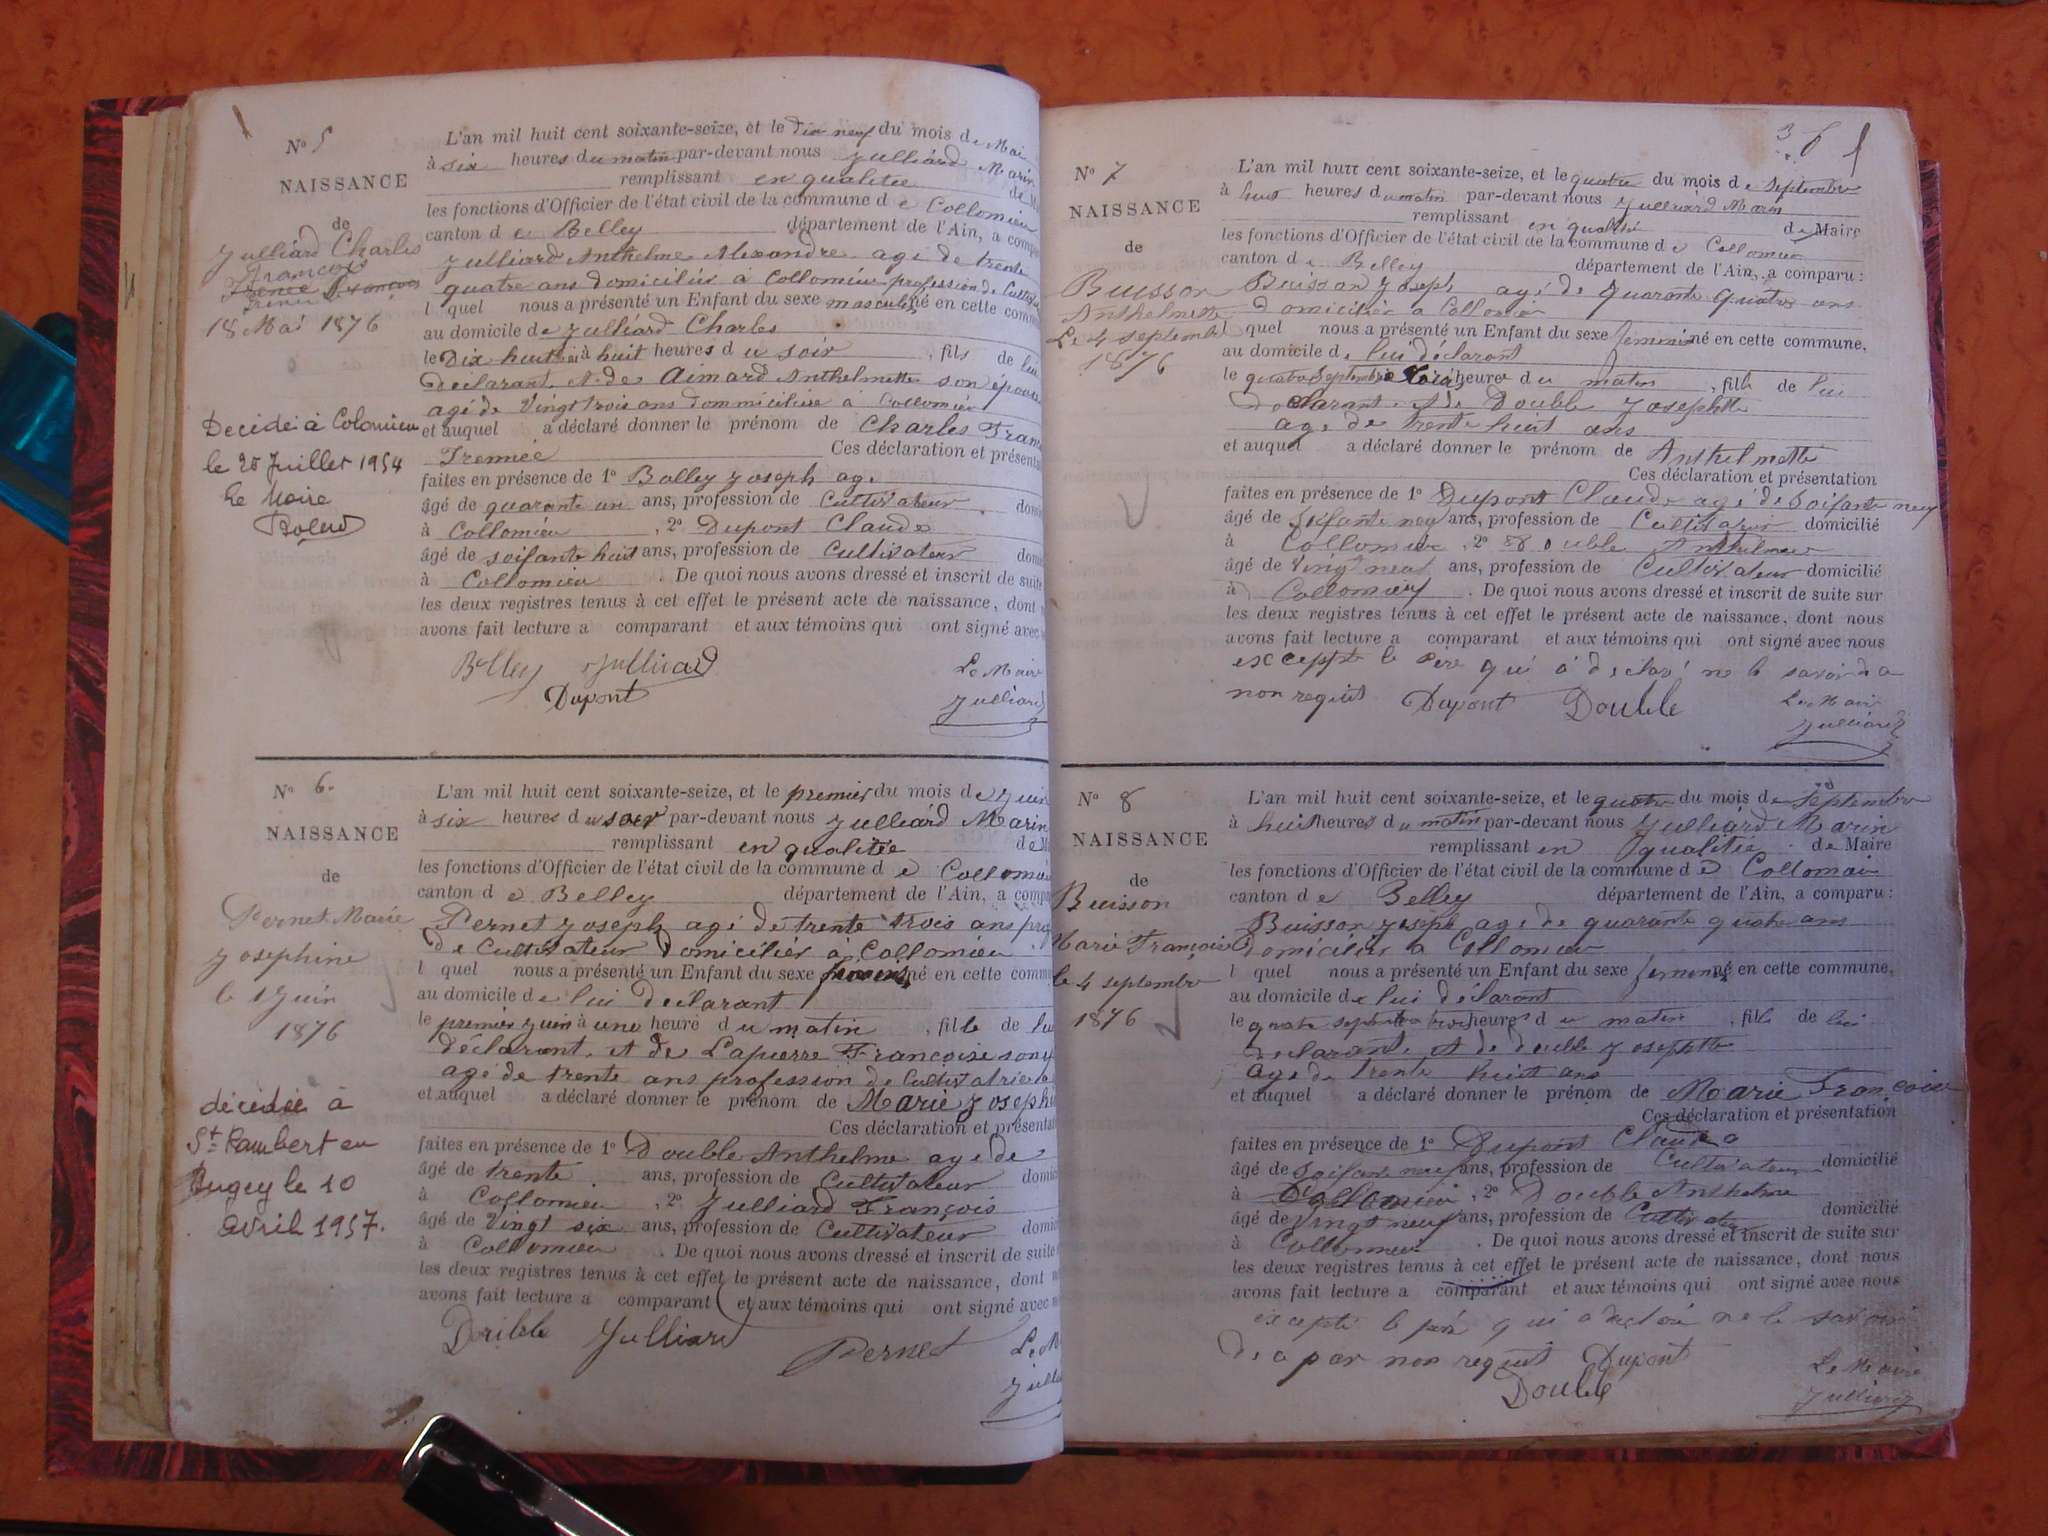 N° 5
NAISSANCE
de
Julliard Charles
François
18 Mai 1876
Decédé à Colomieu
le 28 Juillet 1954
Le Maire
L'an mil huit cent soixante-seize, et le Dix neuf du mois de Mai
à six heures du matin par-devant nous Julliard Marin
remplissant en qualitée de
les fonctions d'Officier de l'état civil de la commune d e Collomieu
canton d e Belley département de l'Ain, a comp
Julliard Anthelme Alexandre agé de trente
quatre ans domiciliér à Collomieu profession de Cultiv
l quel nous a présenté un Enfant du sexe masculin né en cette comm
au domicile de Julliard Charles
le Dix huit mai à huit heures d u soir , fils de lui
déclarant & de Aimard Anthelmette son épouse
agé de Vingt trois ans dommiciliere à Collomieu
et auquel a déclaré donner le prénom de Charles Fran
Irennée Ces déclaration et présenta
faites en présence de 1° Bolley Joseph ag.
âgé de quarante un ans, profession de Cultivateur domi
à Collomieu , 2° Dupont Claude
âgé de soifante huit ans, profession de Cultivateur domi
à Collomieu . De quoi nous avons dressé et inscrit de suite
les deux registres tenus à cet effet le présent acte de naissance, dont
avons fait lecture a comparant et aux témoins qui ont signé avec
Belley Julliard Le Maire
Dupont Julliard
N° 6.
NAISSANCE
de
Pernet Marie
Josephine
le 1 Juin
1876
décédée à
St Rambert en
Bugey le 10
avril 1957.
L'an mil huit cent soixante-seize, et le premier du mois de Juin
à six heures du soir par-devant nous Julliard Marin
remplissant en qualitée de M
les fonctions d'Officier de l'état civil de la commune d e Collomieu
canton d e Belley département de l'Ain, a compa
Pernet Joseph agé de trente trois ans prof
de Cultivateur domiciliér à Collomieu
l quel nous a présenté un Enfant du sexe feminin né en cette comm
au domicile de lui déclarant
le premier Juin à une heure d u matin , fille de lui
déclarant & de Lapierre Françoise son
agé de trente ans profession de Cultivatrice
et auquel a déclaré donner le prénom de Marie Josephi
Ces déclaration et présentat
faites en présence de 1° Double Anthelme agé de
âgé de trente ans, profession de Cultivateur domici
à Collomieu , 2° Julliard François
âgé de Vingt six ans, profession de Cultivateur domi
à Collomieu . De quoi nous avons dressé et inscrit de suite
les deux registres tenus à cet effet le présent acte de naissance, dont
avons fait lecture a comparant et aux témoins qui ont signé avec
Double Julliard Pernet Le M
Julli
N° 7
NAISSANCE
de
Buisson
Anthelmette
Le 4 septembre
1876
L'an mil huit cent soixante-seize, et le quatre du mois d e septembre
à huit heures du matin par-devant nous Julliard Marin
remplissant en qualité de Maire
les fonctions d'Officier de l'état civil de la commune d e Collomieu
canton d e Belley département de l'Ain, a comparu :
Buisson Joseph agé de quarante quatre ans
domiciliér a Collomieu
l quel nous a présenté un Enfant du sexe feminin né en cette commune,
au domicile de lui déclarant
le quatre septembre à trois heures d u matin , fille de lui
declarant & de Double Josephtte
agé de trente huit ans
et auquel a déclaré donner le prénom de Anthelmette
Ces déclaration et présentation
faites en présence de 1° Dupont Claude agé de soifante neuf
âgé de soifante neuf ans, profession de Cultivateur domicilié
à Collomieu , 2° Double Anthelme
âgé de Vingt neuf ans, profession de Cultivateur domicilié
à Collomieu . De quoi nous avons dressé et inscrit de suite sur
les deux registres tenus à cet effet le présent acte de naissance, dont nous
avons fait lecture a comparant et aux témoins qui ont signé avec nous
excepté le père qui a declaré ne le savoir de a
non requis Dupont Double Le Maire
Julliard
N° 8
NAISSANCE
de
Buisson
Marie Françoise
le 4 septembre
1876
L'an mil huit cent soixante-seize, et le quatre du mois de septembre
à huit heures d u matin par-devant nous Julliard Marin
remplissant en qualitée de Maire
les fonctions d'Officier de l'état civil de la commune d e Collomieu
canton d e Belley département de l'Ain, a comparu :
Buisson Joseph agé de quarante quatre ans
domiciliér a Collomieu
l quel nous a présenté un Enfant du sexe feminin né en cette commune,
au domicile de lui déclarant
le quatre septembre à trois heures d u matin , fille de lui
declarant & de double Josephtte
agé de trente huit ans
et auquel a déclaré donner le prénom de Marie Françoise
Ces déclaration et présentation
faites en présence de 1° Dupont Claude
âgé de soifante neuf ans, profession de Cultivateur domicilié
à Collomieu , 2° Double Anthelme
âgé de Vingt neuf ans, profession de Cultivateur domicilié
à Collomieu . De quoi nous avons dressé et inscrit de suite sur
les deux registres tenus à cet effet le présent acte de naissance, dont nous
avons fait lecture a comparant et aux témoins qui ont signé avec nous
excepté le père qui a declaré ne le savoir
de a par non requis Dupont Le Maire
Double Julliard